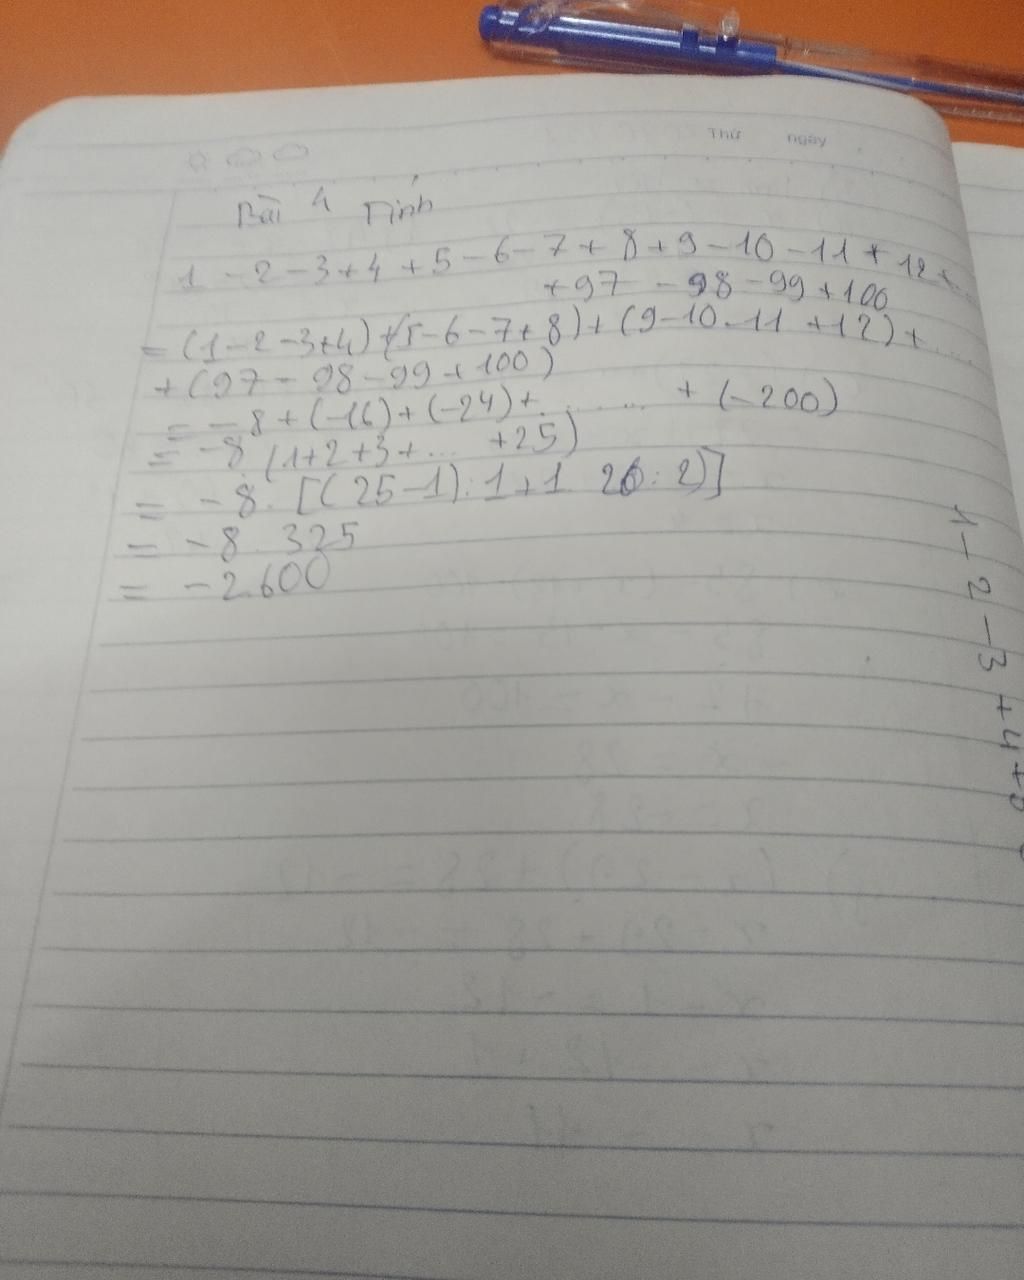 Thứ ngày
Bài 4 Tính
1 - 2 - 3 + 4 + 5 - 6 - 7 + 8 + 9 - 10 - 11 + 12 + ...
+ 97 - 98 - 99 + 100
= (1 - 2 - 3 + 4) + (5 - 6 - 7 + 8) + (9 - 10 - 11 + 12) + ...
+ (97 - 98 - 99 + 100)
= -8 + (-16) + (-24) + ........ + (-200)
= -8 (1 + 2 + 3 + ... + 25)
= -8. [(25 - 1) : 1 + 1 26 : 2)]
= -8. 325
= -2.600
1 - 2 - 3 + 4 + 5